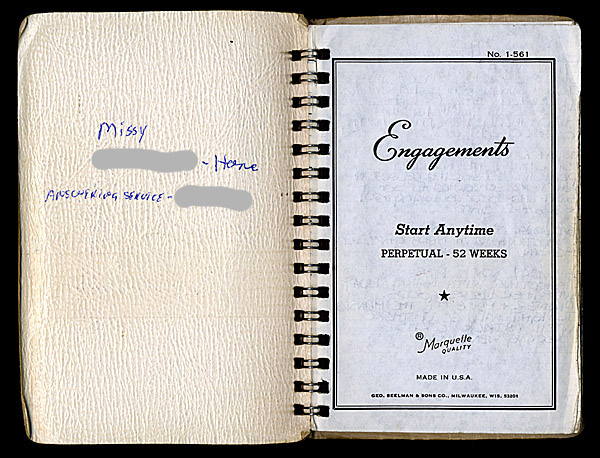 Missy
- Home
ANSWERING SERVICE -
No. 1-561
Engagements
Start Anytime
PERPETUAL - 52 WEEKS
® Marquelle
QUALITY
MADE IN U.S.A.
GEO. BEELMAN & SONS CO., MILWAUKEE, WIS. 53201